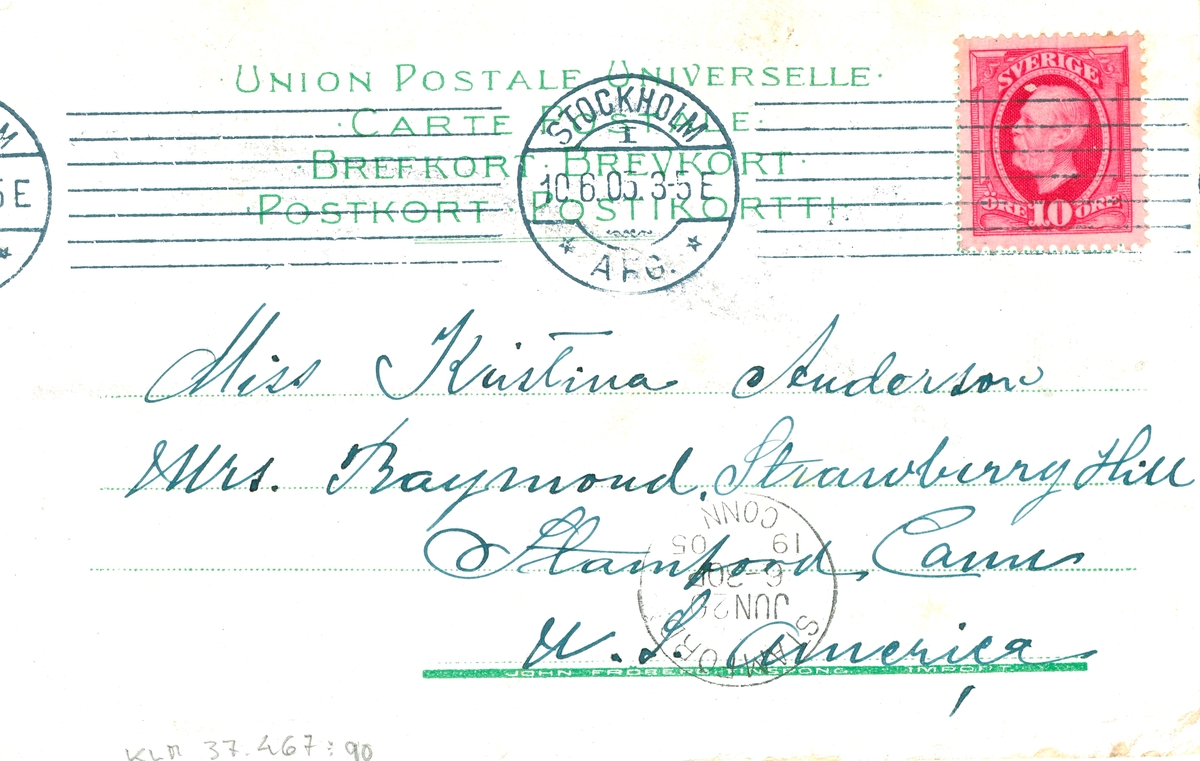 UNION POSTALE UNIVERSELLE
CARTE POSTALE
BREFKORT · BREVKORT
POSTKORT · POSTIKORTTI
STOCKHOLM
1
10.6.05 3-5E
AFG.
M
5E
SVERIGE
ÖRE 10 ÖRE
Miss Kristina Anderson
Mrs. Raymond, Strawberry Hill
Stampood, Conn
U. S. America
STAMFORD
JUN
6-30P
19 05
CONN
JOHN FRÖBERG FINSPONG. IMPORT.
KLM 37.467:90